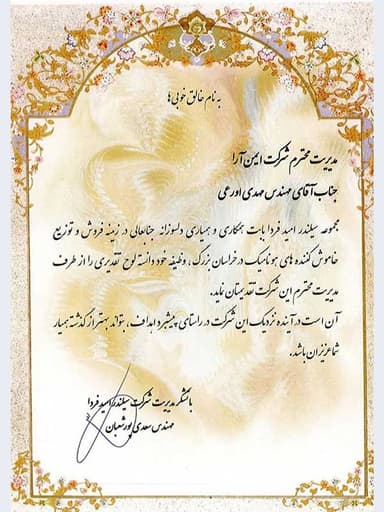 به نام خالق خوبی‌ها
مدیریت محترم شرکت ایمن آرا
جناب آقای مهندس مهدی اورعی
مجموعه سیلندر امید فردا بابت همکاری و همیاری دلسوزانه جنابعالی در زمینه فروش و توزیع
خاموش کننده های هونامیک در خراسان بزرگ ، وظیفه خود دانسته لوح تقدیری را از طرف
مدیریت محترم این شرکت تقدیمتان نماید.
آن است در آینده نزدیک این شرکت در راستای پیشبرد اهداف ، بتواند بهتر از گذشته همیار
شما عزیزان باشد.
با تشکر مدیریت شرکت سیلندر امید فردا
مهندس سعدی پورشعبان